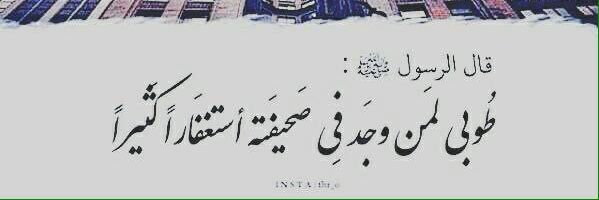 قال الرسول ﷺ :
طُوبى لمَن وجَد فِي صَحيفَته أستغفَاراً كَثيراً
INSTA : thr_o